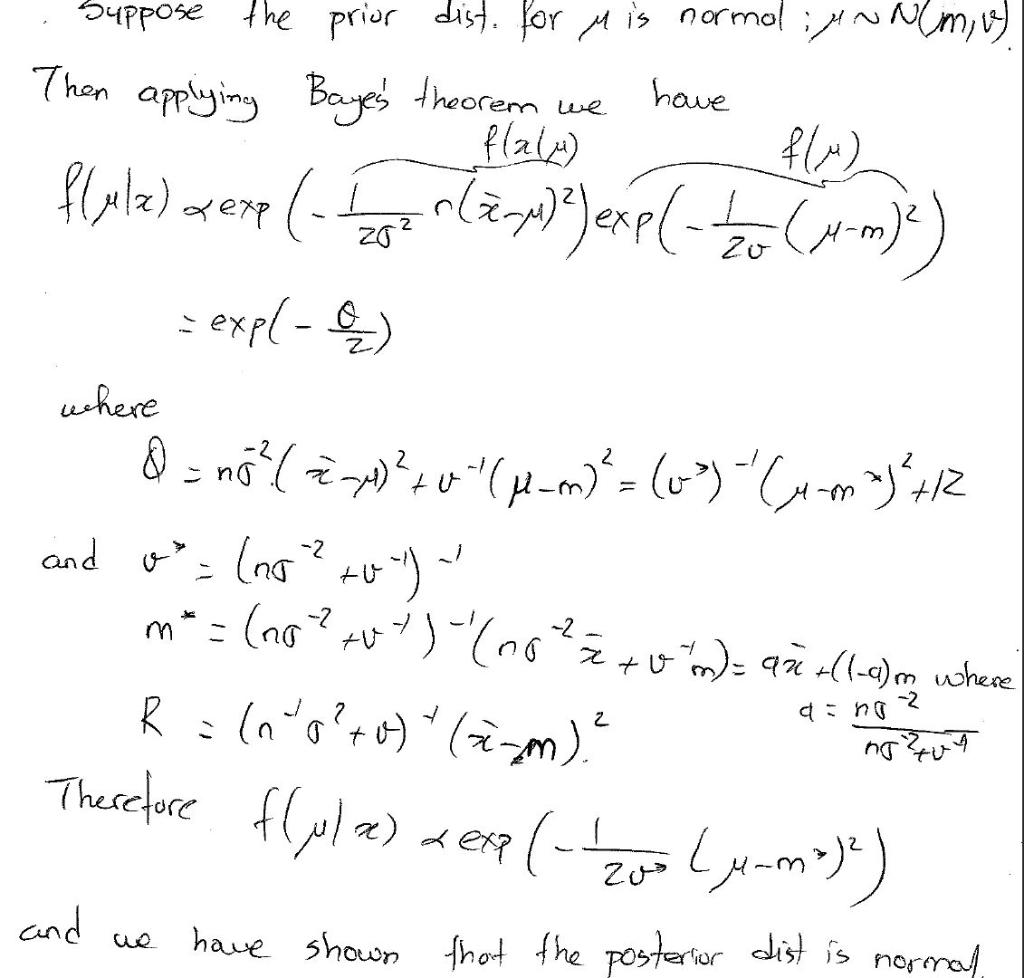 . Suppose the prior dist. for μ is normal ; μ ~ N(m, v).
Then applying Baye's theorem we have
f(x|μ) f(μ)
f(μ|x) ∝ exp (- 1/2σ² n(x̄-μ)²) exp(- 1/2v (μ-m)²)
= exp(- Q/2)
where
Q = nσ⁻²(x̄-μ)² + v⁻¹(μ-m)² = (v*)⁻¹(μ-m*)² + R
and v* = (nσ⁻² + v⁻¹)⁻¹
m* = (nσ⁻² + v⁻¹)⁻¹(nσ⁻² x̄ + v⁻¹m) = ax̄ + (1-a)m where
a = nσ⁻² / nσ⁻² + v⁻¹
R = (n⁻¹σ² + v)⁻¹ (x̄-m)².
Therefore f(μ|x) ∝ exp (- 1/2v* (μ-m*)²)
and we have shown that the posterior dist is normal.